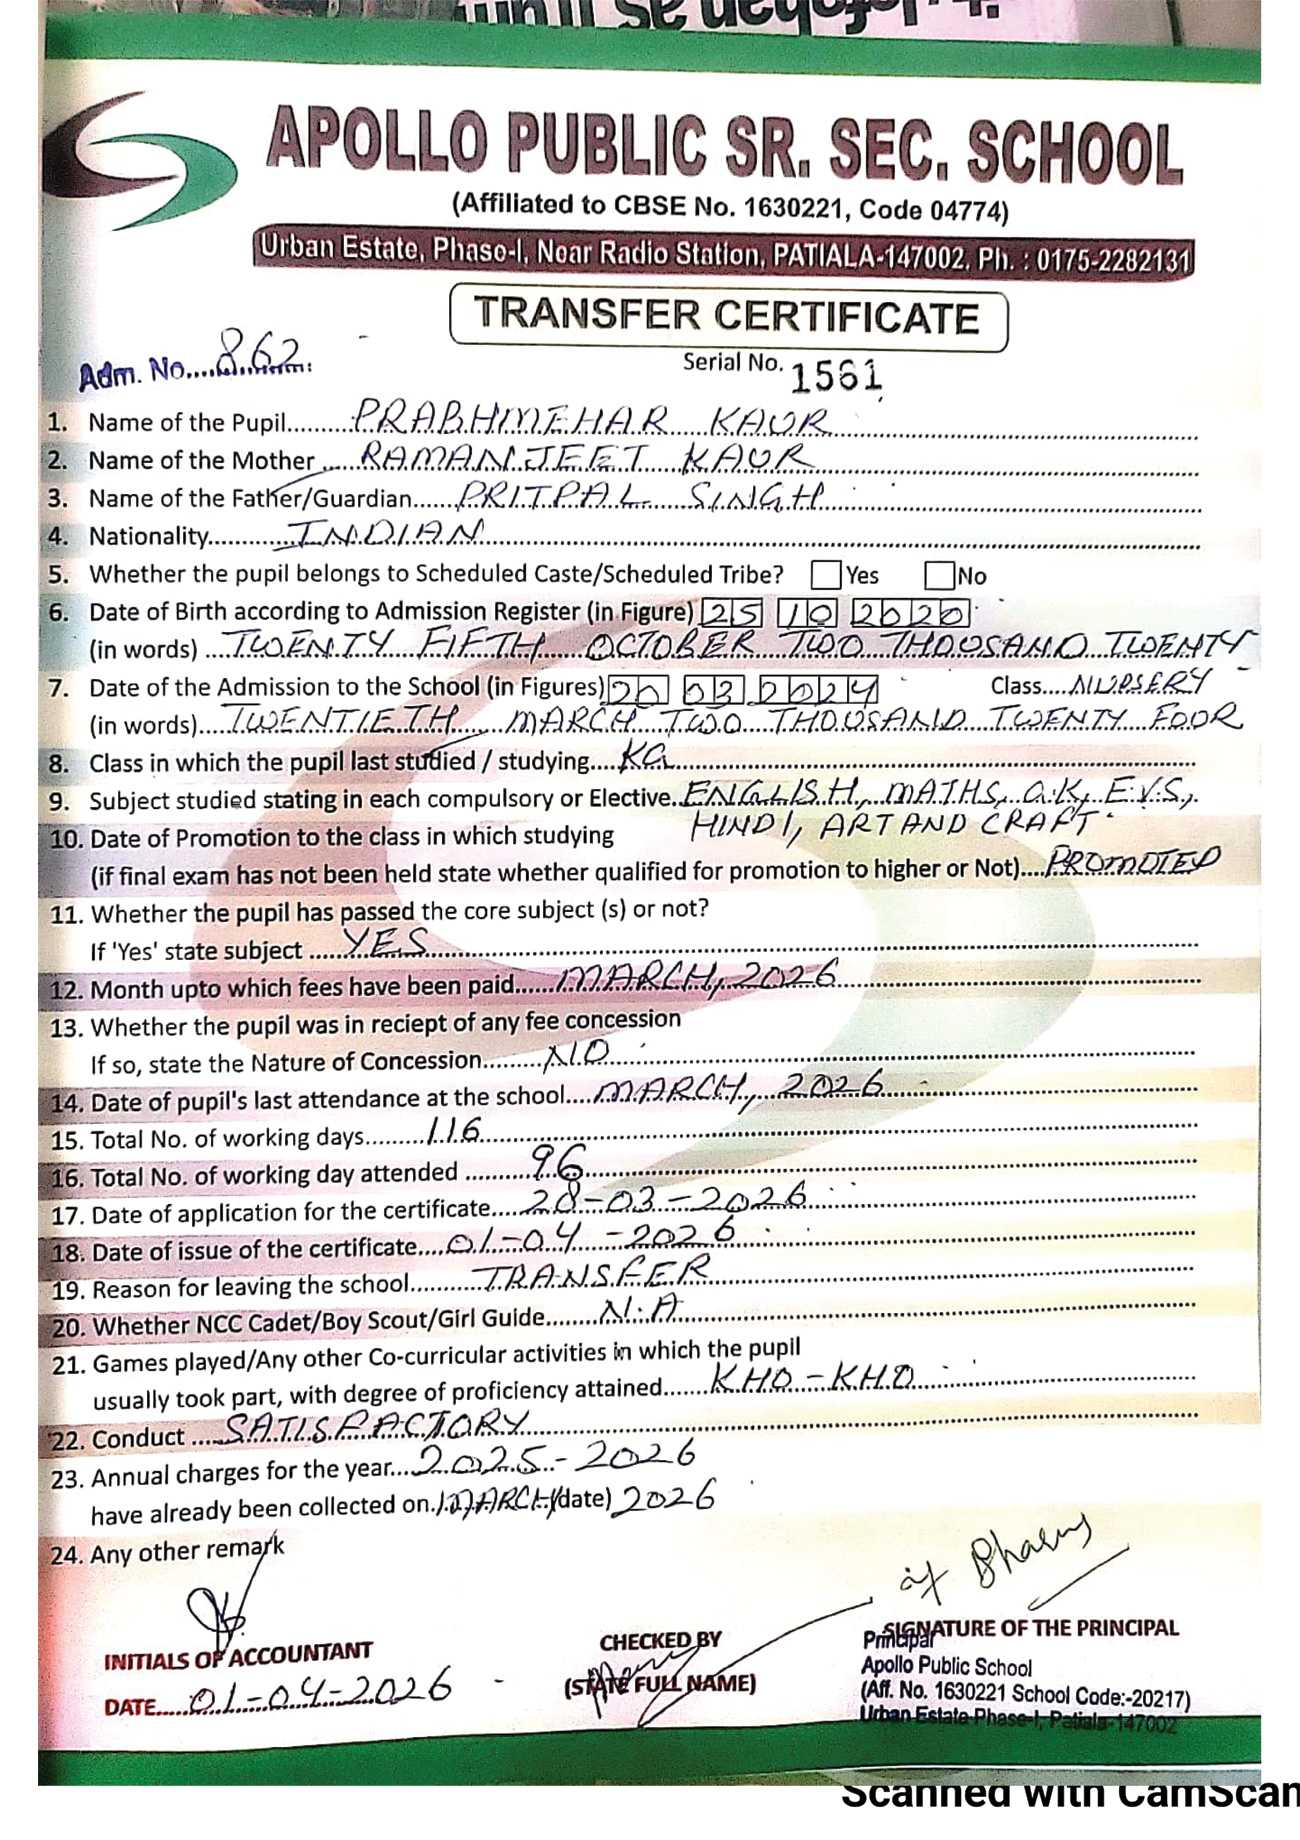 APOLLO PUBLIC SR. SEC. SCHOOL
(Affiliated to CBSE No. 1630221, Code 04774)
Urban Estate, Phase-I, Near Radio Station, PATIALA-147002, Ph. : 0175-2282131
TRANSFER CERTIFICATE
Adm. No. 862
Serial No. 1561
1. Name of the Pupil PRABHMEHAR KAUR
2. Name of the Mother RAMANJEET KAUR
3. Name of the Father/Guardian PRITPAL SINGH
4. Nationality INDIAN
5. Whether the pupil belongs to Scheduled Caste/Scheduled Tribe? Yes No
6. Date of Birth according to Admission Register (in Figure) 25 10 2020
(in words) TWENTY FIFTH OCTOBER TWO THOUSAND TWENTY
7. Date of the Admission to the School (in Figures) 20 03 2024 Class NURSERY
(in words) TWENTIETH MARCH TWO THOUSAND TWENTY FOUR
8. Class in which the pupil last studied / studying KG
9. Subject studied stating in each compulsory or Elective ENGLISH, MATHS, G.K, E.V.S,
HINDI, ART AND CRAFT
10. Date of Promotion to the class in which studying
(if final exam has not been held state whether qualified for promotion to higher or Not) PROMOTED
11. Whether the pupil has passed the core subject (s) or not?
If 'Yes' state subject YES
12. Month upto which fees have been paid MARCH, 2026
13. Whether the pupil was in reciept of any fee concession
If so, state the Nature of Concession NO
14. Date of pupil's last attendance at the school MARCH, 2026
15. Total No. of working days 116
16. Total No. of working day attended 96
17. Date of application for the certificate 28-03-2026
18. Date of issue of the certificate 01-04-2026
19. Reason for leaving the school TRANSFER
20. Whether NCC Cadet/Boy Scout/Girl Guide N.A
21. Games played/Any other Co-curricular activities in which the pupil
usually took part, with degree of proficiency attained KHO-KHO
22. Conduct SATISFACTORY
23. Annual charges for the year 2025-2026
have already been collected on MARCH (date) 2026
24. Any other remark
INITIALS OF ACCOUNTANT
DATE 01-04-2026
CHECKED BY
(STATE FULL NAME)
SIGNATURE OF THE PRINCIPAL
Principal
Apollo Public School
(Aff. No. 1630221 School Code:-20217)
Urban Estate Phase-I, Patiala-147002
Scanned with CamScan